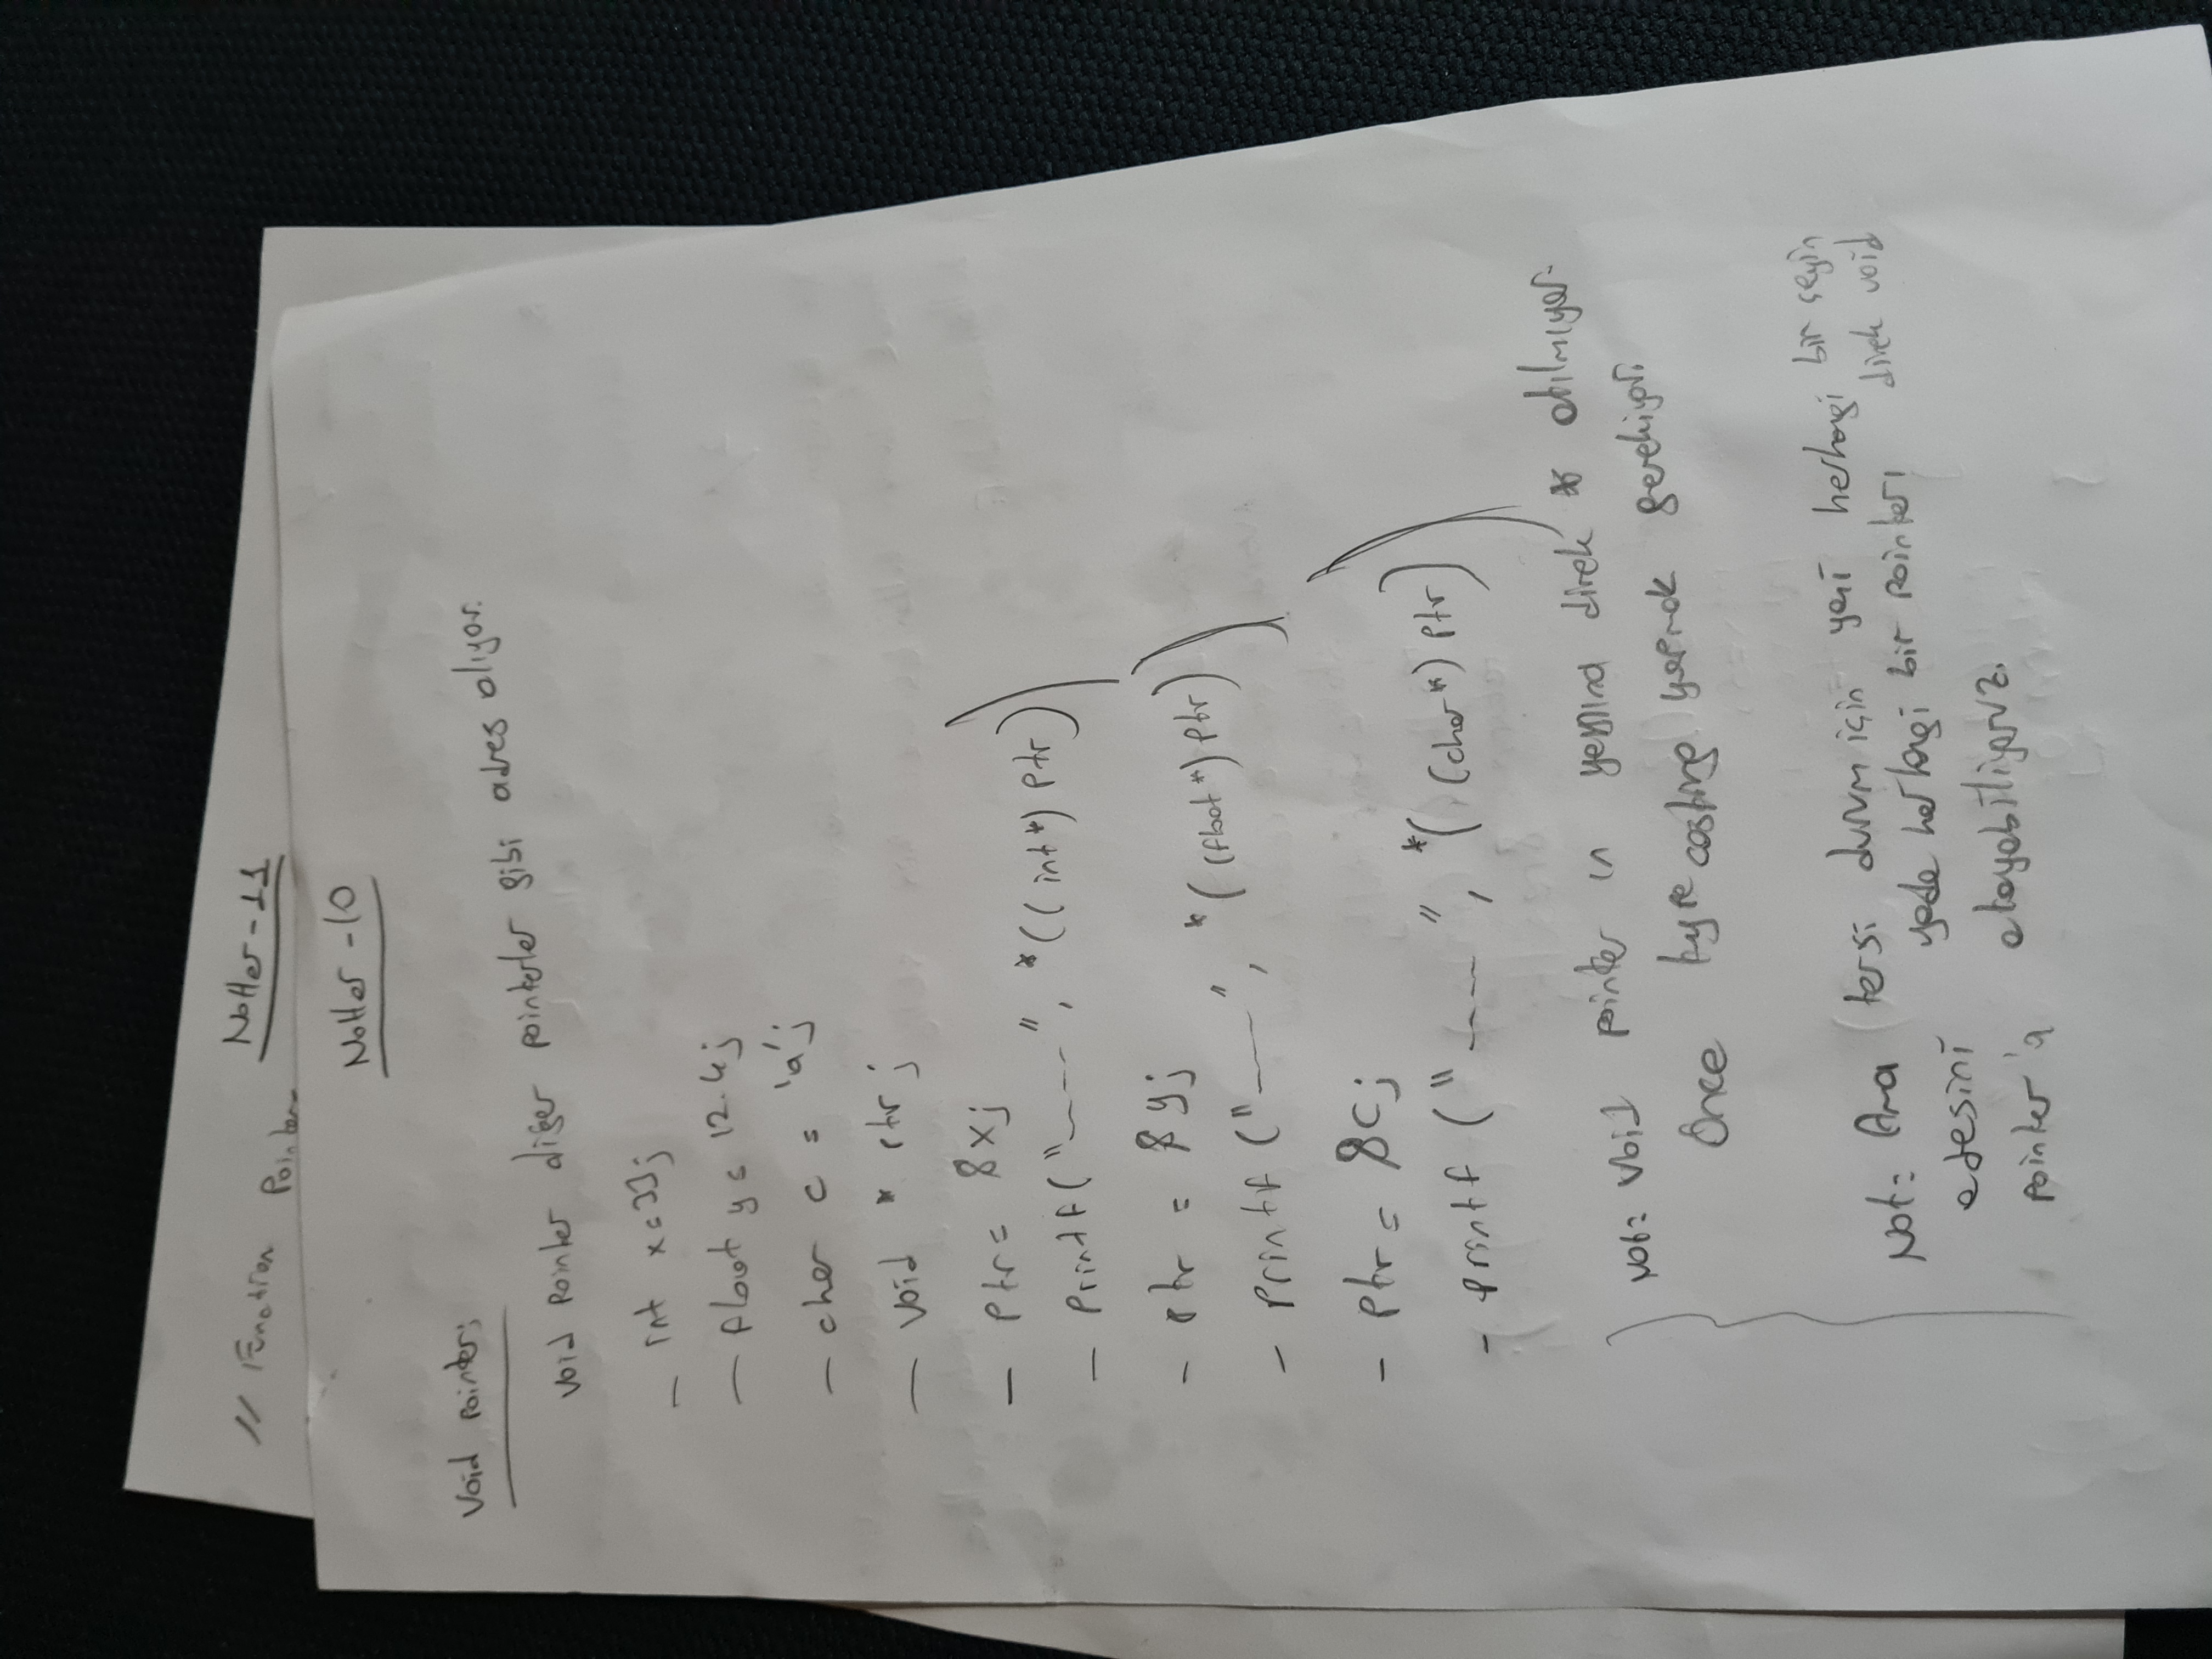 Notlar-11
// Function Pointer
Notlar-10
Void pointer;
void pointer diğer pointerler gibi adres alıyor.
- int x=33;
- float y = 12.4;
- char c = 'a';
- void * ptr;
- Ptr = &x;
- Printf("-----", *((int*) Ptr)
- ptr = &y;
- Printf ("-----", *((float*) Ptr))
- Ptr = &c;
- printf ("-----", *((char*) Ptr)
Not: Void pointer ın yanına direk * atılmıyor.
Önce type casting yapmak gerekiyor.
Not: Ama tersi durum için yani herhangi bir şeyin
adresini yada herhangi bir pointerı direk void
pointer'a atayabiliyoruz.